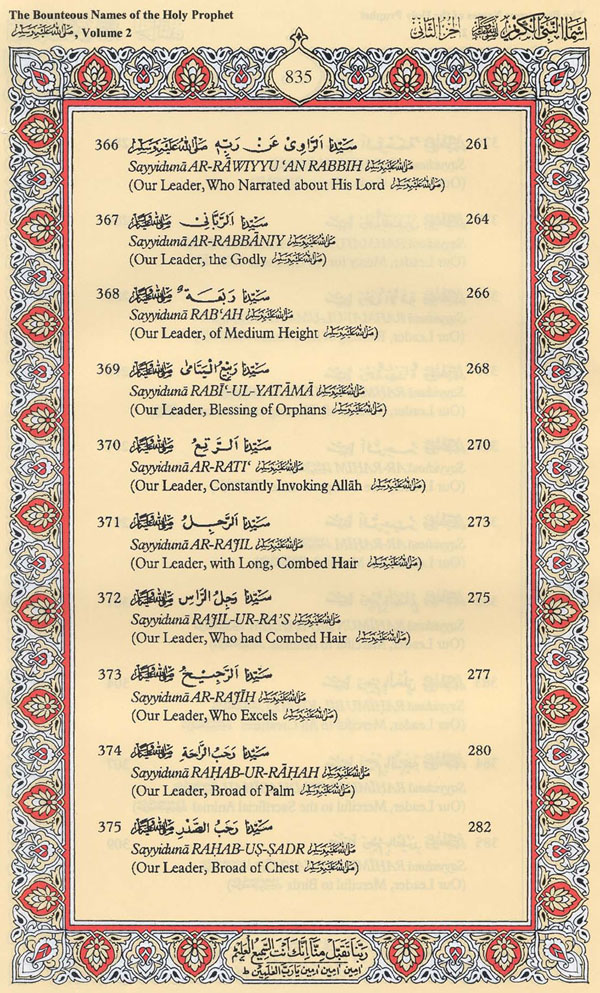 The Bounteous Names of the Holy Prophet
ﷺ, Volume 2
أسماء النبي الكريم ﷺ الجزء الثاني
835
366 سَيِّدُنَا اَلرَّاوِيْ عَنْ رَبِّهٖ ﷺ 261
Sayyidunā AR-RĀWIYYU ‘AN RABBIH ﷺ
(Our Leader, Who Narrated about His Lord ﷺ)
367 سَيِّدُنَا اَلرَّبَّانِيُّ ﷺ 264
Sayyidunā AR-RABBĀNIY ﷺ
(Our Leader, the Godly ﷺ)
368 سَيِّدُنَا رَبْعَةٌ ﷺ 266
Sayyidunā RAB‘AH ﷺ
(Our Leader, of Medium Height ﷺ)
369 سَيِّدُنَا رَبِيْعُ الْيَتَامٰى ﷺ 268
Sayyidunā RABĪ‘-UL-YATĀMĀ ﷺ
(Our Leader, Blessing of Orphans ﷺ)
370 سَيِّدُنَا اَلرَّتِعُ ﷺ 270
Sayyidunā AR-RATI‘ ﷺ
(Our Leader, Constantly Invoking Allāh ﷺ)
371 سَيِّدُنَا اَلرَّجِلُ ﷺ 273
Sayyidunā AR-RAJIL ﷺ
(Our Leader, with Long, Combed Hair ﷺ)
372 سَيِّدُنَا رَجِلُ الرَّاسِ ﷺ 275
Sayyidunā RAJIL-UR-RA’S ﷺ
(Our Leader, Who had Combed Hair ﷺ)
373 سَيِّدُنَا اَلرَّجِيْحُ ﷺ 277
Sayyidunā AR-RAJĪH ﷺ
(Our Leader, Who Excels ﷺ)
374 سَيِّدُنَا رَحَبُ الرَّاحَةِ ﷺ 280
Sayyidunā RAḤAB-UR-RĀḤAH ﷺ
(Our Leader, Broad of Palm ﷺ)
375 سَيِّدُنَا رَحَبُ الصَّدْرِ ﷺ 282
Sayyidunā RAḤAB-UṢ-ṢADR ﷺ
(Our Leader, Broad of Chest ﷺ)
ربنا تقبل منا انك انت السميع العليم
امين امين امين يا رب العلمين ط